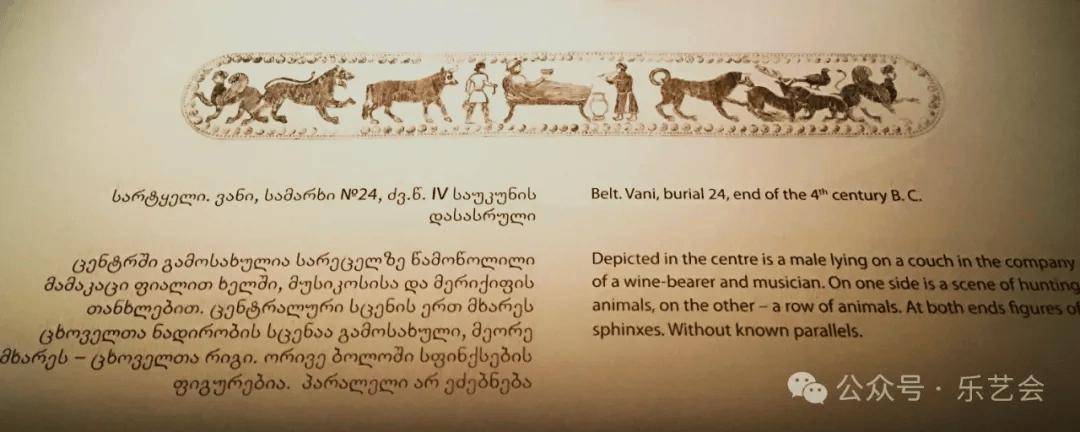 სარტყელი. ვანი, სამარხი №24, ძვ.წ. IV საუკუნის
დასასრული
ცენტრში გამოსახულია სარეცელზე წამოწოლილი
მამაკაცი ფიალით ხელში, მუსიკოსისა და მერიქიფის
თანხლებით. ცენტრალური სცენის ერთ მხარეს
ცხოველთა ნადირობის სცენაა გამოსახული, მეორე
მხარეს – ცხოველთა რიგი. ორივე ბოლოში სფინქსების
ფიგურებია. პარალელი არ ეძებნება
Belt. Vani, burial 24, end of the 4th century B. C.
Depicted in the centre is a male lying on a couch in the company
of a wine-bearer and musician. On one side is a scene of hunting
animals, on the other – a row of animals. At both ends figures of
sphinxes. Without known parallels.
公众号 · 乐艺会